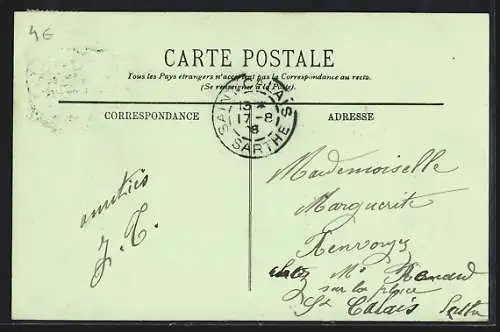 4€
CARTE POSTALE
Tous les Pays étrangers n'acceptent pas la Correspondance au recto.
(Se renseigner à la Poste).
SAINT-CALAIS
13 *
17-8
SARTHE
CORRESPONDANCE
ADRESSE
amitiés
Mademoiselle
Marguerite
chez Mr Renard
sur la place
St Calais Sarthe